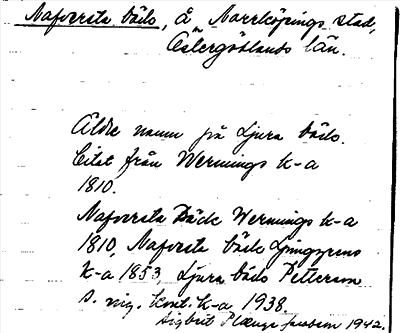 Naforsta bäck, Å Norrköpings stad,
Östergötlands län.
Äldre namn på Ljura bäck.
Citat från Wernings k-a
1810.
Naforsta Bäck Wernings k-a
1810, Naforsta bäck Ljunggrens
k-a 1853, Ljura bäck Pettersson
o. vig. kont. k-a 1938.
Sigbrit Jacobsen 1942.